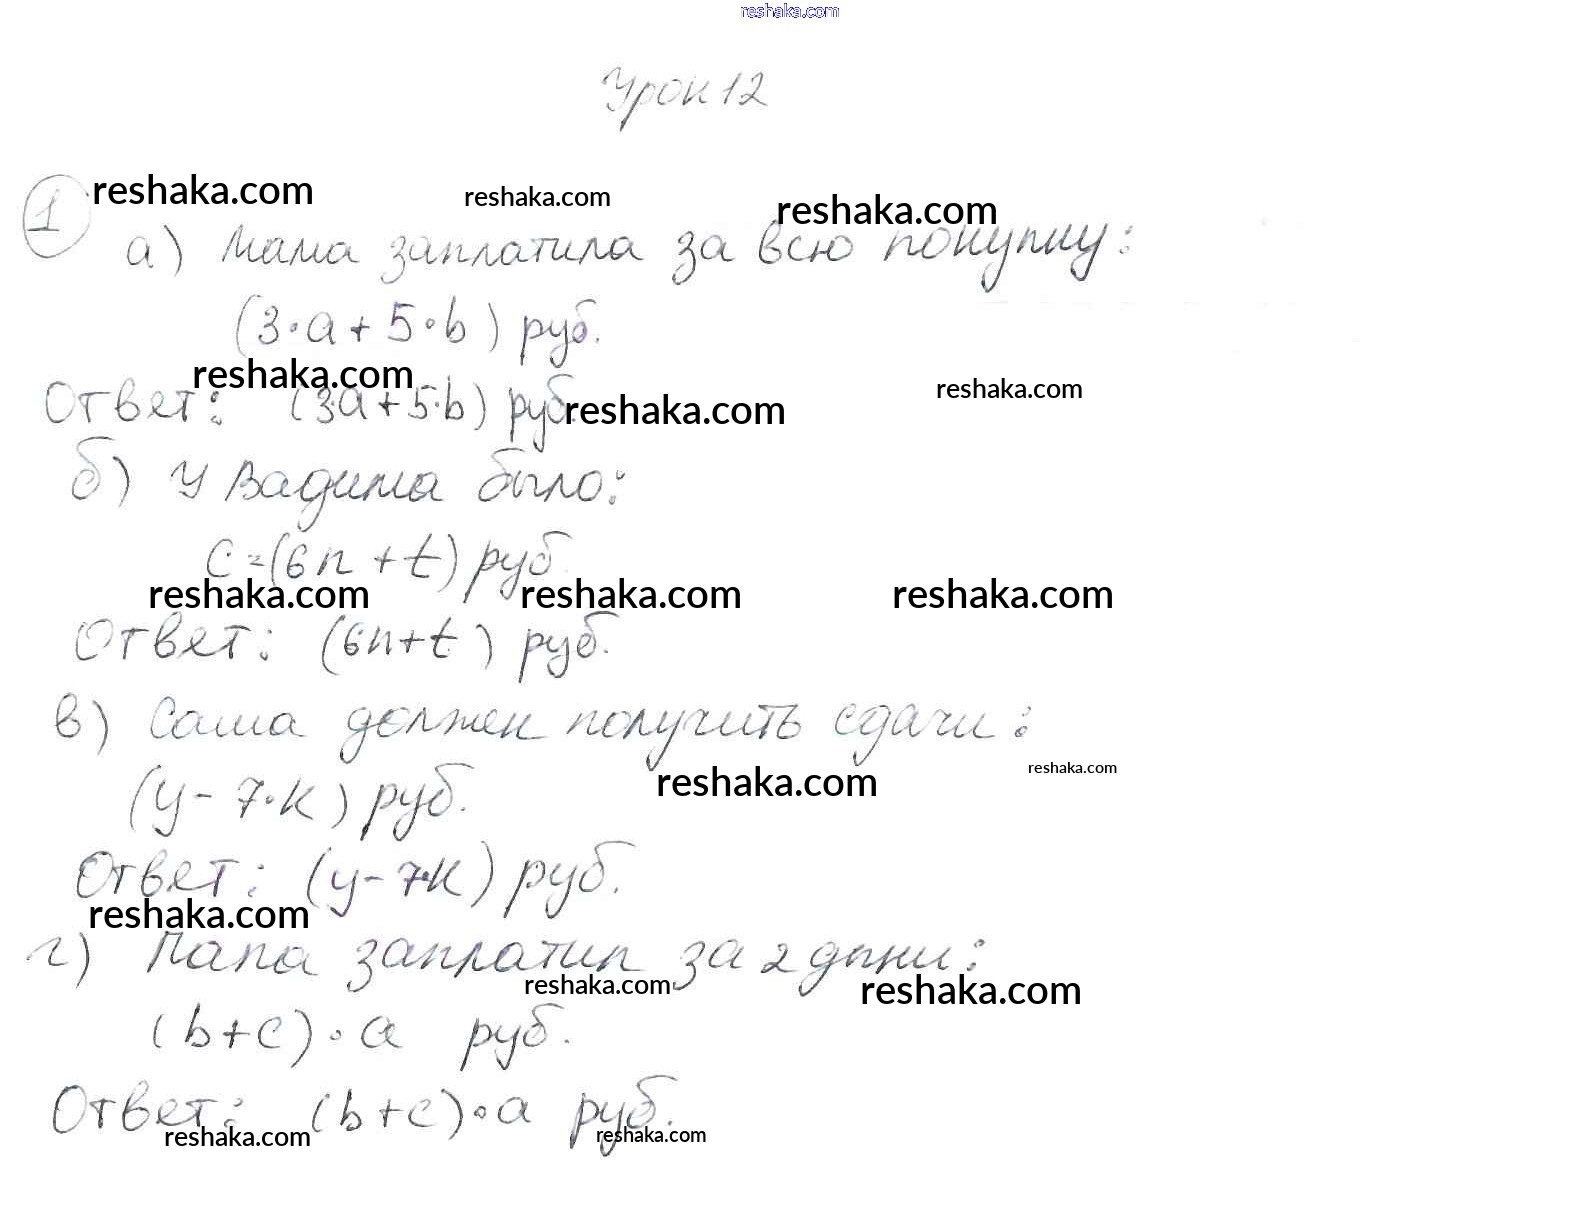 reshaka.com
Урок 12
reshaka.com reshaka.com reshaka.com
1
а) Мама заплатила за всю покупку:
(3·a + 5·b) руб.
reshaka.com reshaka.com
Ответ: (3·a+5·b) руб. reshaka.com
б) У Вадима было:
c=(6n + t) руб.
reshaka.com reshaka.com reshaka.com
Ответ: (6n+t) руб.
в) Саша должен получить сдачи:
reshaka.com reshaka.com
(y - 7·k) руб.
Ответ: (y-7·k) руб.
reshaka.com
г) Папа заплатил за 2 дыни:
reshaka.com reshaka.com
(b+c)·a руб.
Ответ: (b+c)·a руб.
reshaka.com reshaka.com